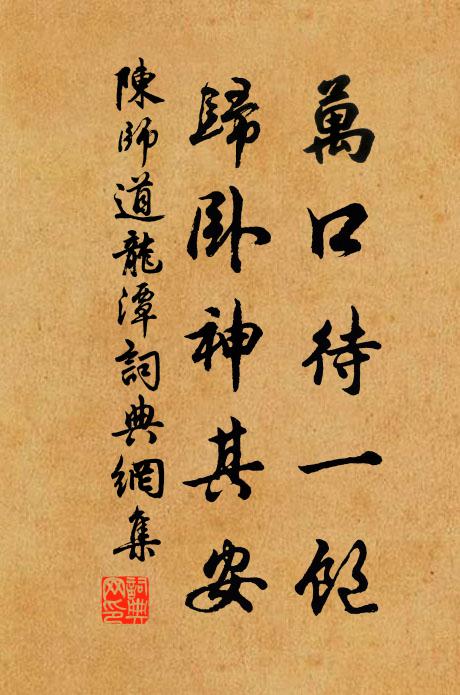 萬口待一飽
歸卧神其安
陳師道龍潭詞典網集
詞典網印